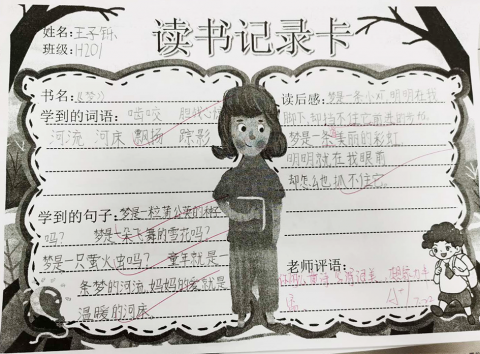 读书记录卡
姓名:王子
班级:H201
书名:《梦》
学到的词语: 啮咬 胆战心
河流 河床 飘扬 踪影
学到的句子:梦是一粒蒲公英的种子
吗? 梦是一朵飞舞的雪花吗?
梦是一只萤火虫吗? 童年就是一
条梦的河流,妈妈的爱就是
温暖的河床
读后感:梦是一条小 明明在我
脚下,却挡不住它前进的步伐
梦是一条美丽的彩虹
明明就在我眼前
却怎么也抓不住它。
老师评语: